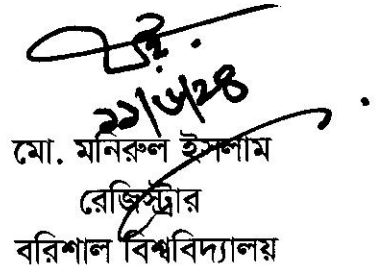 ১১/৬/২৪
মো. মনিরুল ইসলাম
রেজিস্ট্রার
বরিশাল বিশ্ববিদ্যালয়